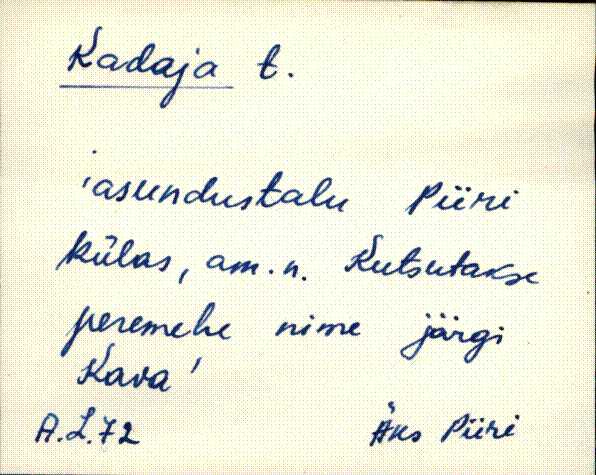 Kadaja t.
'asundustalu Piiri
külas, am.n. Kutsutakse
peremehe nime järgi
Kava'
A.L.72 Äks Piiri